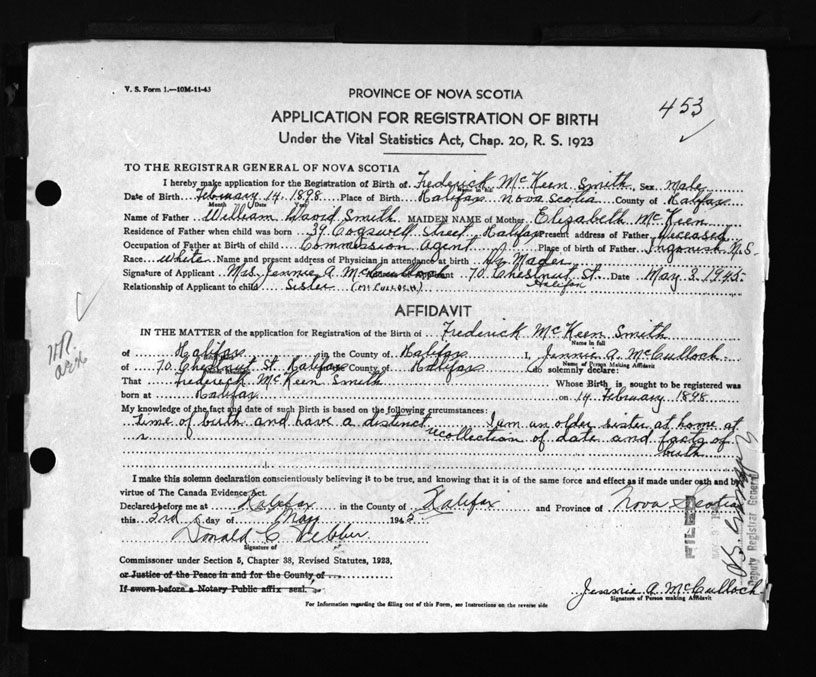 V. S. Form 1.—10M-11-43
PROVINCE OF NOVA SCOTIA
453
APPLICATION FOR REGISTRATION OF BIRTH
Under the Vital Statistics Act, Chap. 20, R. S. 1923
TO THE REGISTRAR GENERAL OF NOVA SCOTIA
I hereby make application for the Registration of Birth of Frederick McKeen Smith Sex Male
Date of Birth February 14 1898 Place of Birth Halifax Nova Scotia County of Halifax
Month Date Year
Name of Father William David Smith MAIDEN NAME of Mother Elizabeth McKeen
Residence of Father when child was born 39 Cogswell Street Halifax Present address of Father Deceased
Occupation of Father at Birth of child Commission Agent Place of Birth of Father Ingonish N.S.
Race White Name and present address of Physician in attendance at birth Dr Mader
Signature of Applicant Mrs. Jennie A. McCulloch 70 Chestnut St. Date May 3 1945
Halifax
Relationship of Applicant to child Sister (McCULLOCH)
AFFIDAVIT
IN THE MATTER of the application for Registration of the Birth of Frederick McKeen Smith
Name in full
of Halifax in the County of Halifax I, Jennie A. McCulloch
Name of Person Making Affidavit
of 70 Chestnut St. Halifax County of Halifax do solemnly declare:
That Frederick McKeen Smith Whose Birth is sought to be registered was
born at Halifax on 14 February 1898
My knowledge of the fact and date of such Birth is based on the following circumstances: I am an older sister at home at
time of birth and have a distinct recollection of date and facts of
birth
I make this solemn declaration conscientiously believing it to be true, and knowing that it is of the same force and effect as if made under oath and by
virtue of The Canada Evidence Act.
Declared before me at Halifax in the County of Halifax and Province of Nova Scotia
this 3rd day of May 1945
Donald C. Webber
Signature of
Commissioner under Section 5, Chapter 38, Revised Statutes, 1923,
or Justice of the Peace in and for the County of
If sworn before a Notary Public affix seal.
Jennie A. McCulloch
Signature of Person making Affidavit
For Information regarding the filling out of this Form, see Instructions on the reverse side
FILED
Deputy Registrar General